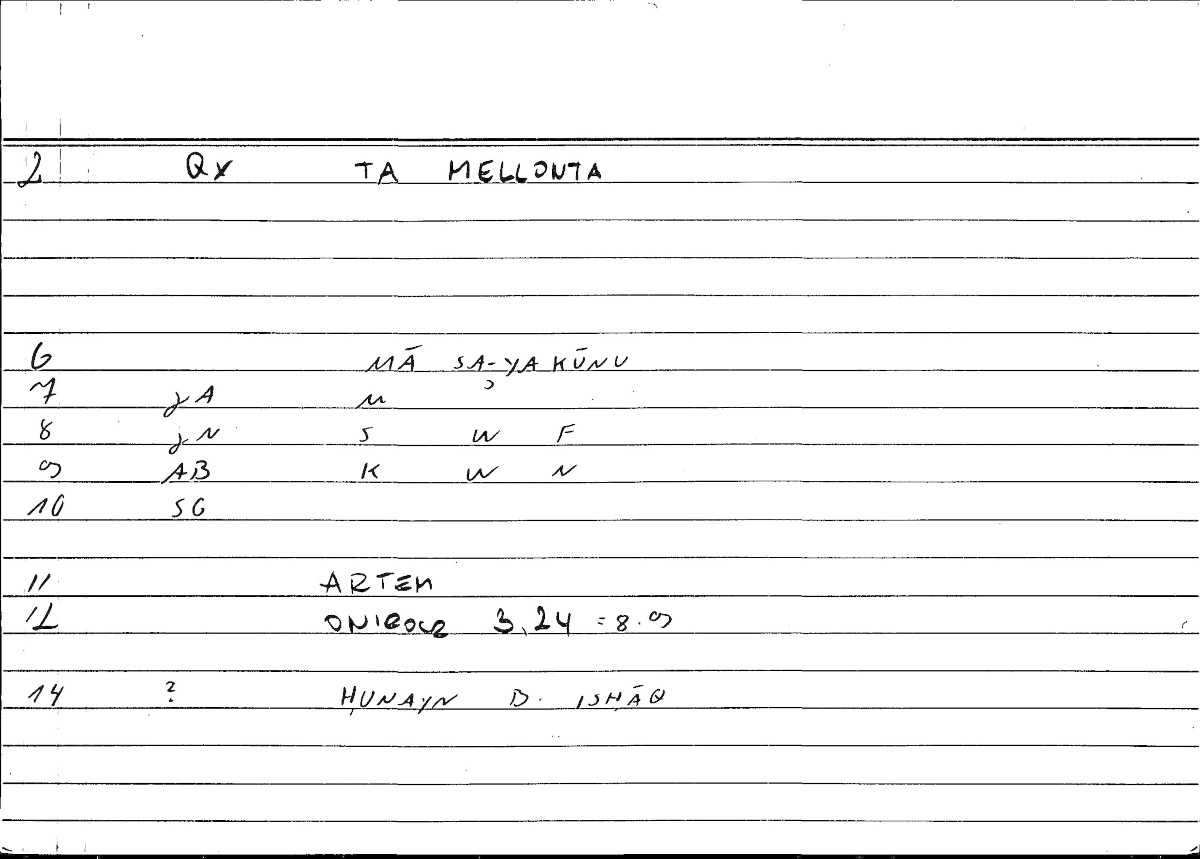 2 QX TA MELLONTA
6 MĀ SA-YAKŪNU
7 gA M ʾ
8 gN S W F
9 AB K W N
10 SG
11 ARTEM
12 ONIROCR 3,24 = 8.9
14 ? ḤUNAYN B. ISḤĀQ